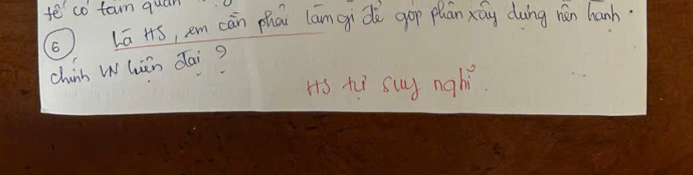 tế có tầm quan
⑥ Là HS, em cần phải làm gì để góp phần xây dựng nền hành
chính VN hiện đại?
HS tự suy nghĩ.